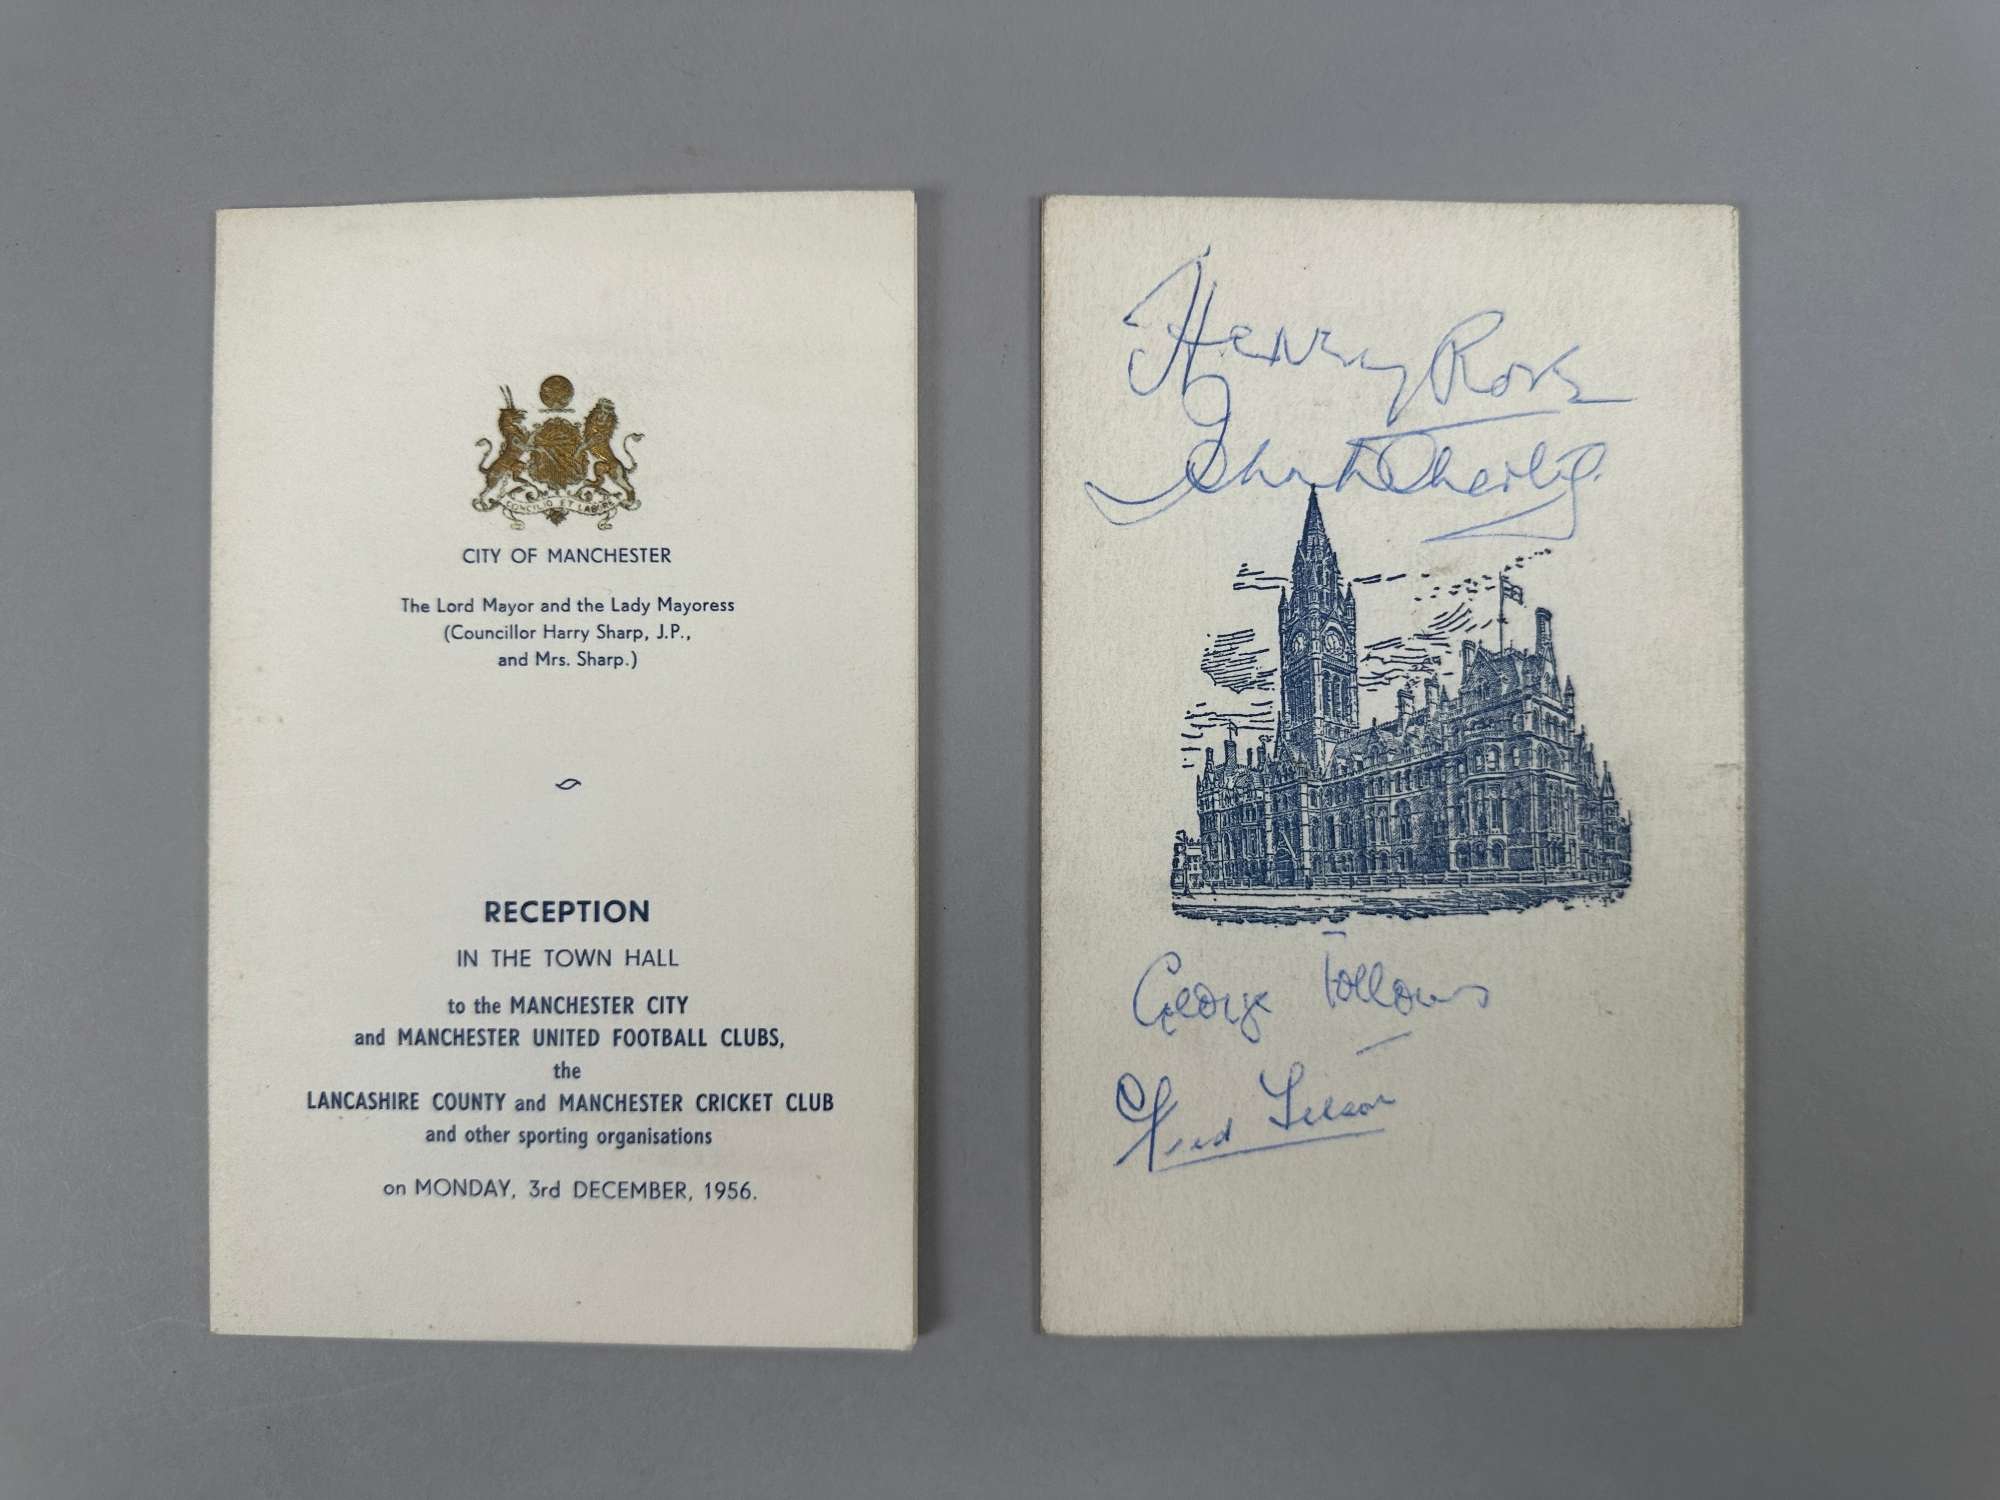 CONCILIO ET LABORE
CITY OF MANCHESTER
The Lord Mayor and the Lady Mayoress
(Councillor Harry Sharp, J.P.,
and Mrs. Sharp.)
RECEPTION
IN THE TOWN HALL
to the MANCHESTER CITY
and MANCHESTER UNITED FOOTBALL CLUBS,
the
LANCASHIRE COUNTY and MANCHESTER CRICKET CLUB
and other sporting organisations
on MONDAY, 3rd DECEMBER, 1956.
Henry Rose
George Follows